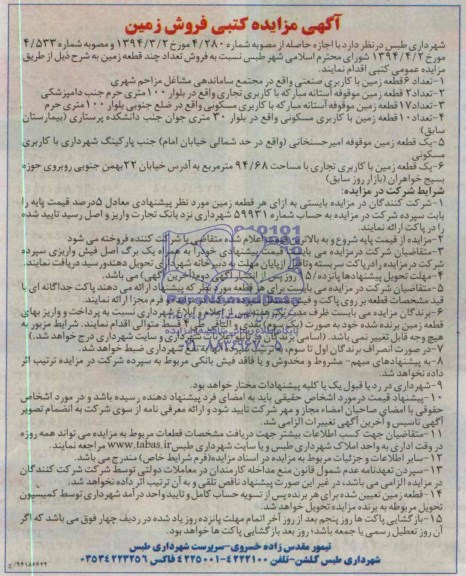 آگهی مزایده کتبی فروش زمین
شهرداری طبس در نظر دارد با اجازه حاصله از مصوبه شماره ۴/۲۸۰ مورخ ۱۳۹۴/۳/۲ و مصوبه شماره ۴/۵۳۳
مورخ ۱۳۹۴/۴/۲ شورای محترم اسلامی شهر طبس نسبت به فروش تعداد چند قطعه زمین به شرح ذیل از طریق
مزایده عمومی کتبی اقدام نماید.
۱-تعداد ۶ قطعه زمین با کاربری صنعتی واقع در مجتمع ساماندهی مشاغل مزاحم شهری
۲-تعداد ۲ قطعه زمین موقوفه آستانه مبارکه با کاربری تجاری واقع در بلوار ۱۰۰متری حرم جنب دامپزشکی
۳-تعداد ۱۷ قطعه زمین موقوفه آستانه مبارکه با کاربری مسکونی واقع در ضلع جنوبی بلوار ۱۰۰متری حرم
۴-تعداد ۱۰ قطعه زمین با کاربری مسکونی واقع در بلوار ۳۰ متری جوان جنب دانشکده پرستاری (بیمارستان
سابق)
۵-یک قطعه زمین موقوفه امیرحسنخانی (واقع در حد شمالی خیابان امام) جنب پارکینگ شهرداری با کاربری
مسکونی
۶-یک قطعه زمین با کاربری تجاری با مساحت ۹۴/۶۸ مترمربع به آدرس خیابان ۲۲بهمن جنوبی روبروی حوزه
بسیج خواهران (بازار روز سابق)
شرایط شرکت در مزایده:
۱-شرکت کنندگان در مزایده بایستی به ازای هر قطعه زمین مورد نظر پیشنهادی معادل ۵درصد قیمت پایه را
بابت سپرده شرکت در مزایده به حساب شماره ۵۹۹۳۱ شهرداری نزد بانک تجارت واریز و اصل رسید تایید شده
را در پاکت ارائه نمایند.
۲-مزایده از قیمت پایه شروع و به بالاترین قیمت اعلام شده متقاضی یا شرکت کننده فروخته می شود
۳-متقاضیان شرکت در مزایده می بایست قیمت پیشنهادی خود را به همراه یک برگ اصل فیش واریزی سپرده
شرکت در مزایده را در پاکت سربسته و تا قبل از پایان مهلت به دبیرخانه شهرداری تحویل دهند و رسید دریافت نمایند.
۴-مهلت تحویل پیشنهادها پانزده/۱۵ روز پس از انتشار آگهی دوم(آخرین آگهی) می باشد.
۵-متقاضیان شرکت در مزایده می بایست برای هر قطعه مورد نظر که پیشنهاد ارائه می دهند پاکت جداگانه ای با
قید مشخصات قطعه بر روی پاکت و فیش جداگانه و فرم مجزا ارائه نمایند.
۶-برندگان مزایده می بایست ظرف مدت یک هفته پس از اعلام و ابلاغ شهرداری نسبت به پرداخت و واریز بهای
قطعه زمین برنده شده خود به صورت (یک سوم) نقد و الباقی متوالی اقدام نمایند. شرایط مزبور به
هیچ وجه قابل تغییر نمی باشد. (اسامی برندگان در تابلو اعلانات شهرداری و سایت شهرداری درج خواهد شد.)
۷-در صورت انصراف برندگان اول تا سوم، سپرده به نفع شهرداری ضبط خواهد شد.
۸-به پیشنهادهای مبهم- مشروط و مخدوش و یا فاقد فیش بانکی مربوط به سپرده شرکت در مزایده ترتیب اثر
داده نخواهد شد.
۹-شهرداری در رد یا قبول یک یا کلیه پیشنهادات مختار خواهد بود.
۱۰-پیشنهاد قیمت در مورد اشخاص حقیقی باید به امضای فرد پیشنهاد دهنده رسیده باشد و در مورد اشخاص
حقوقی با امضای صاحبان امضاء مجاز و مهر شرکت تایید شود و ارائه معرفی نامه از سوی شرکت به انضمام تصویر
آگهی تاسیس و آخرین آگهی تغییرات الزامی شد.
۱۱-متقاضیان جهت کسب اطلاعات بیشتر جهت دریافت مشخصات قطعات مربوط به مزایده می تواند همه روزه
در وقت اداری به واحد املاک شهرداری طبس و یا سایت شهرداری طبس www.tabas.ir مراجعه نمایند.
۱۲-سایر اطلاعات و جزئیات مربوط به مزایده در اسناد مزایده(فرم شرایط خاص) مندرج می باشد.
۱۳-سپردن تعهدنامه عدم شمول قانون منع مداخله کارمندان در معاملات دولتی توسط شرکت شرکت کنندگان
در مزایده الزامی می باشد، در غیر این صورت پیشنهاد ناقص تلقی و به آن ترتیب اثر داده نخواهد شد.
۱۴-قطعه زمین تعیین شده برای هر برنده پس از تسویه حساب کامل و تایید واحد درآمد شهرداری توسط کمیسیون
تحویل مربوطه به برنده مزایده تحویل خواهد شد.
۱۵-بازگشایی پاکت ها روز پنجم بعد از روز آخر اتمام مهلت پانزده روز یاد شده در ردیف چهار فوق می باشد که اگر
آن روز تعطیل رسمی یا جمعه باشد؛ روز بعد بازگشایی پاکت ها خواهد بود.
تیمور مقدس زاده خسروی-سرپرست شهرداری طبس
شهرداری طبس گلشن-تلفن ۴۲۲۲۱۰۰-۴۲۲۵۰۰۱ فاکس ۰۳۵۳۴۲۲۳۲۵۶